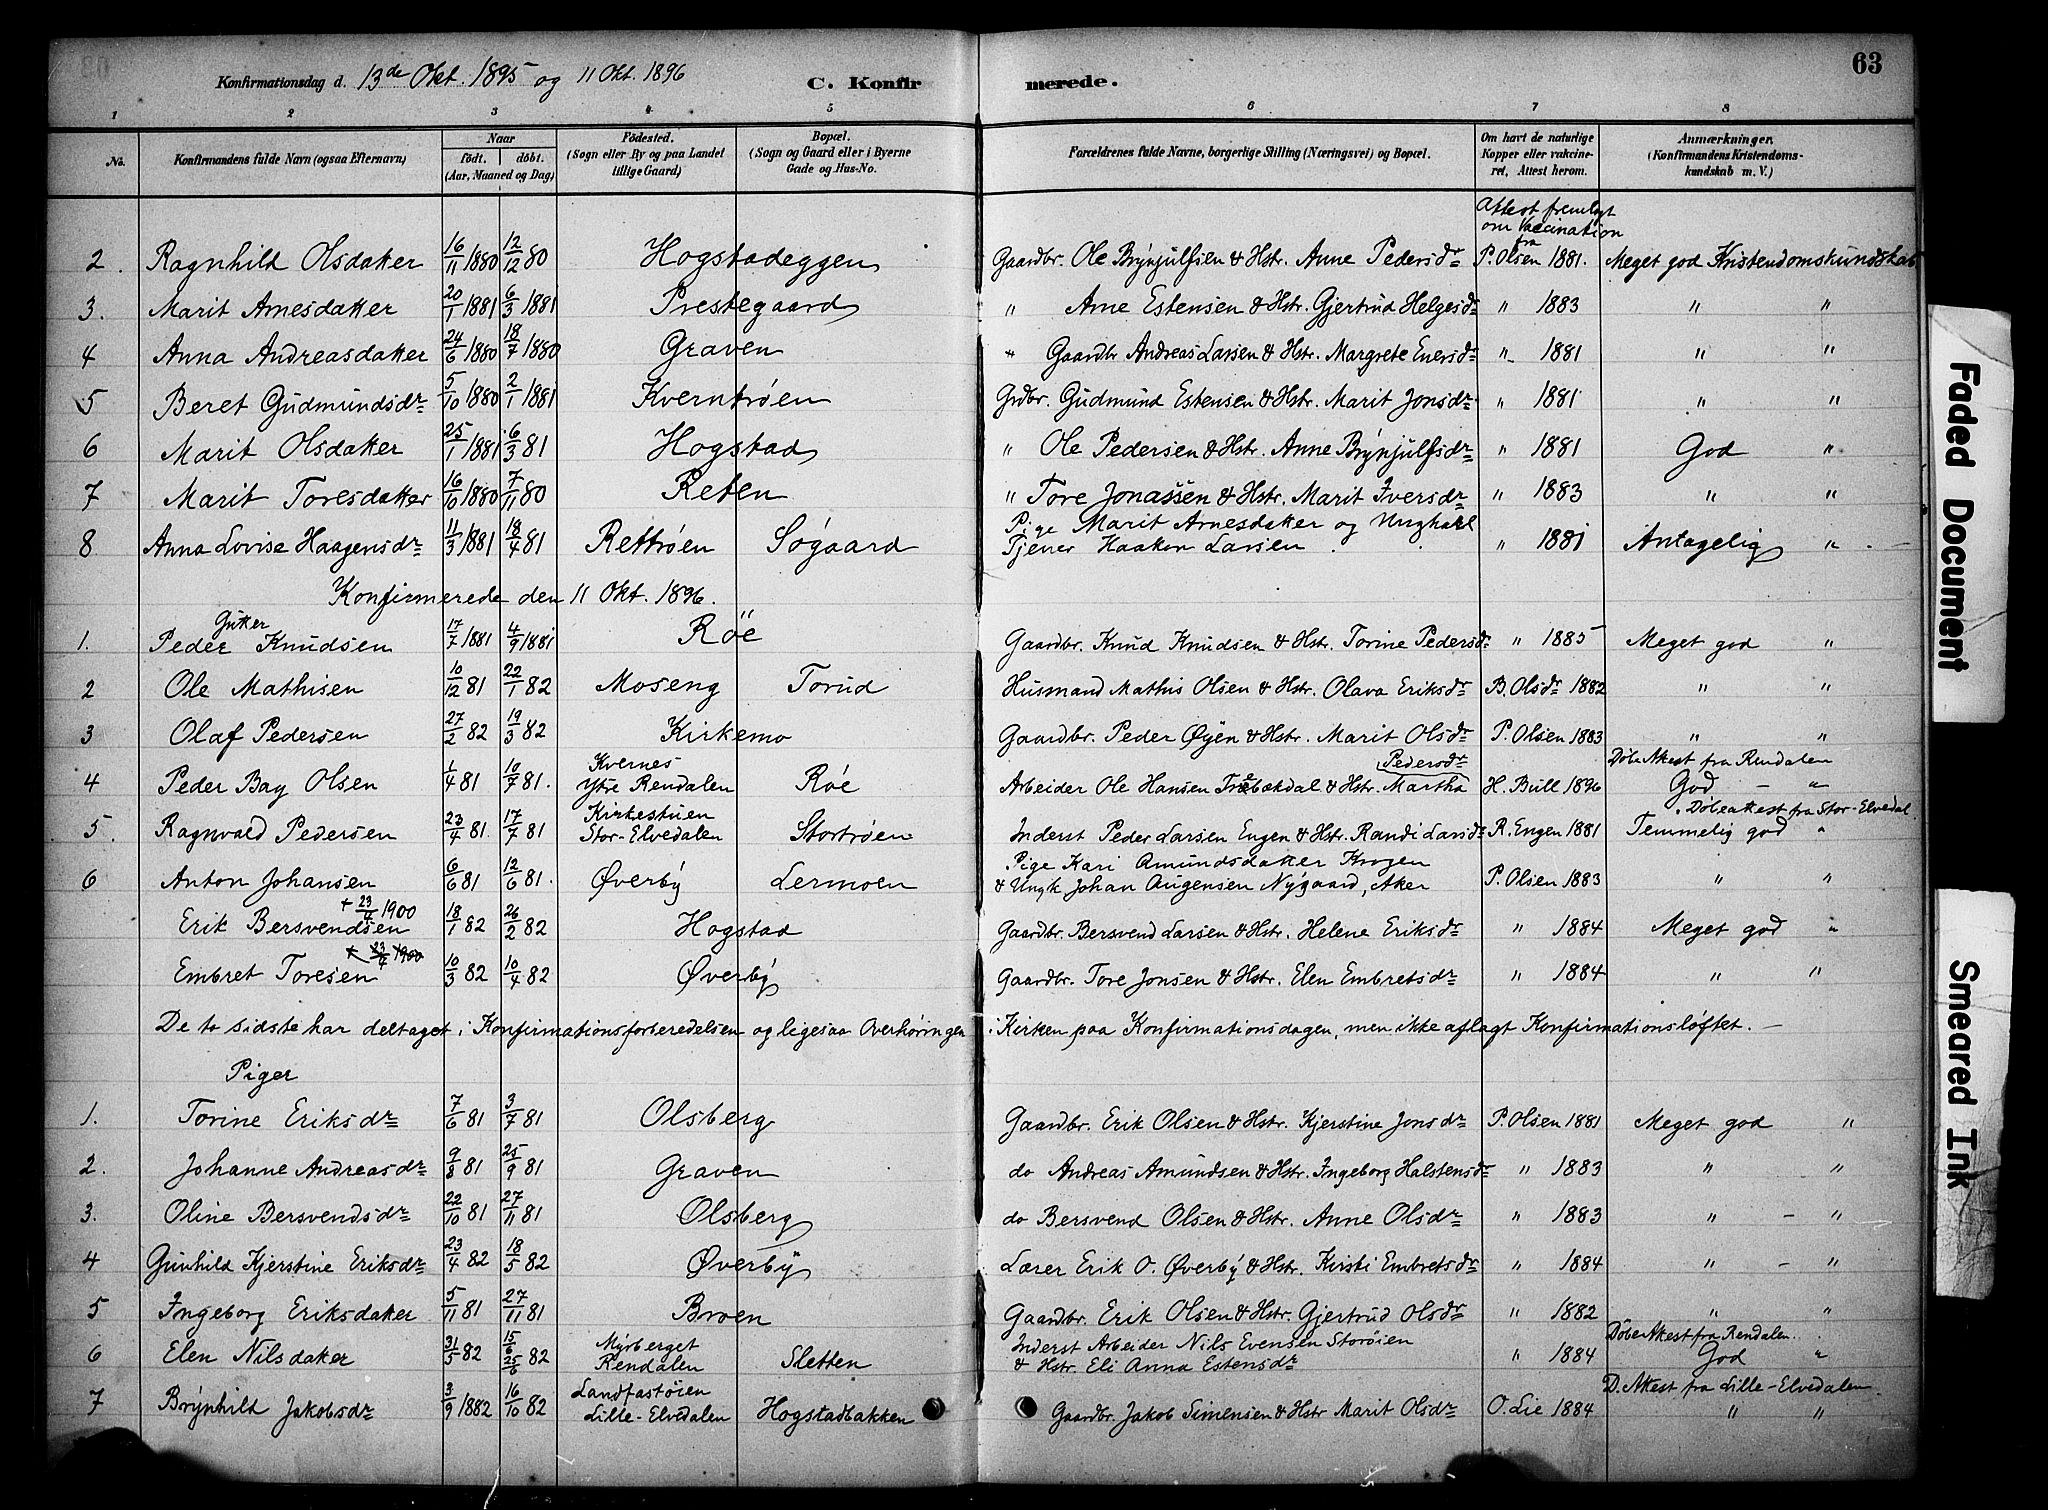 63
Konfirmationsdag d. 13de Okt. 1895 og 11 Okt. 1896 C. Konfirmerede.
1 2 3 4 5 6 7 8
No. Konfirmandens fulde Navn (ogsaa Efternavn) Naar födt. döbt. (Aar, Maaned og Dag) Födested. (Sogn eller By og paa Landet tillige Gaard) Bopæl. (Sogn og Gaard eller i Byerne Gade og Hus-No. Forældrenes fulde Navne, borgerlige Stilling (Næringsvei) og Bopæl. Om havt de naturlige Kopper eller vakcineret, Attest herom. Anmærkninger. (Konfirmandens Kristendomskundskab m. V.)
Attest fremlagt om Vaccination fra
2. Ragnhild Olsdatter 16/11 1880 12/12 80 Hogstadeggen Gaardbr. Ole Brynjulfsen & Hstr. Anne Pedersdr P. Olsen 1881. Meget god Kristendomskundskab
3. Marit Arnesdatter 20/1 1881 6/3 1881 Prestegaard " Arne Estensen & Hstr. Gjertrud Helgesdr " 1883 " "
4 Anna Andreasdatter 24/6 1880 18/7 1880 Graven " Gaardbr Andreas Larsen & Hstr. Margrete Enersdr " 1881 " "
5 Beret Gudmundsdr 5/10 1880 2/1 1881 Kverntrøen Grdbr. Gudmund Estensen & Hstr. Marit Jonsdr " 1881 " "
6 Marit Olsdatter 25/1 1881 6/3 81 Hogstad " Ole Pedersen & Hstr. Anne Brynjulfsdr " 1881 God "
7 Marit Toresdatter 16/10 1880 7/11 80 Reten " Tore Jonassen & Hstr. Marit Iversdr " 1883 " "
8 Anna Lovise Haagensdr 11/3 1881 18/4 81 Rettrøen Søgaard Pige Marit Arnesdatter og Ungkarl Tjener Haakon Larsen " 1881 Antagelig "
Konfirmerede den 11 Okt. 1896.
Gutter
1. Peder Knudsen 17/7 1881 4/9 1881 Røe Gaardbr. Knud Knudsen & Hstr. Torine Pedersdr " 1885 Meget god "
2 Ole Mathisen 10/12 81 22/1 82 Moseng Torud Husmand Mathis Olsen & Hstr. Olava Eriksdr B. Olsdr 1882 " "
3 Olaf Pedersen 27/2 82 19/3 82 Kirkemo Gaardbr. Peder Øyen & Hstr. Marit Olsdr P. Olsen 1883 " "
4 Peder Bay Olsen 1/4 81 10/7 81. Kvernes Ytre Rendalen Røe Arbeider Ole Hansen & Hstr. Martha Pedersdr H. Bull 1896 Døbeattest fra Rendalen God - "
5. Ragnvald Pedersen 23/4 81. 17/7 81 Kirkestuen Stor-Elvedalen Stortrøen Inderst Peder Larsen Engen & Hstr. Randi Larsdr R. Engen 1881 Døbeattest fra Stor-Elvedal Temmelig god "
6 Anton Johansen 6/6 81 12/6 81. Øverby Lermoen Pige Kari Amundsdatter Krogen & Ungk. Johan Augensen Nygaard, Aker P. Olsen 1883 " "
Erik Bersvendsen + 23/4 1900 18/1 82 26/2 82 Hogstad Gaardbr. Bersvend Larsen & Hstr. Helene Eriksdr " 1884 Meget god "
Embret Toresen + 23/4 1900 10/3 82 10/4 82 Øverby Gaardbr. Tore Jonsen & Hstr. Elen Embretsdr " 1884 " "
De to sidste har deltaget i Konfirmationsforberedelsen og ligesaa Overhøringen i Kirken paa Konfirmationsdagen, men ikke aflagt Konfirmationsløftet. -
Piger
1. Torine Eriksdr 7/6 81 3/7 81 Olsberg Gaardbr. Erik Olsen & Hstr. Kjerstine Jonsdr P. Olsen 1881 Meget god "
2. Johanne Andreasdr 9/8 81 25/9 81 Graven do Andreas Amundsen & Hstr. Ingeborg Halstensdr " 1883 " "
3. Oline Bersvendsdr 22/10 81 27/11 81 Olsberg do Bersvend Olsen & Hstr. Anne Olsdr " 1883 " - "
4 Gunhild Kjerstine Eriksdr 23/4 82 18/5 82 Øverby Lærer Erik O. Øverby & Hstr. Kirsti Embretsdr " 1884 " - "
5 Ingeborg Eriksdatter 5/11 81 27/11 81 Broen Gaardbr. Erik Olsen & Hstr. Gjertrud Olsdr " 1882 " "
6 Elen Nilsdatter 31/5 82 15/6 25/6 82 Myrberget Rendalen Sletten Inderst Arbeider Nils Evensen Storøien & Hstr. Eli Anna Estensdr " 1884 Døbeattest fra Rendalen. God "
7 Brynhild Jakobsdr 3/9 1882 16/10 82 Landfastøien Lille-Elvedalen Hogstadbakken Gaardbr. Jakob Simensen & Hstr Marit Olsdr O. Lie 1884 D. Attest fra Lille-Elvedalen. " "
Faded Document
Smeared Ink